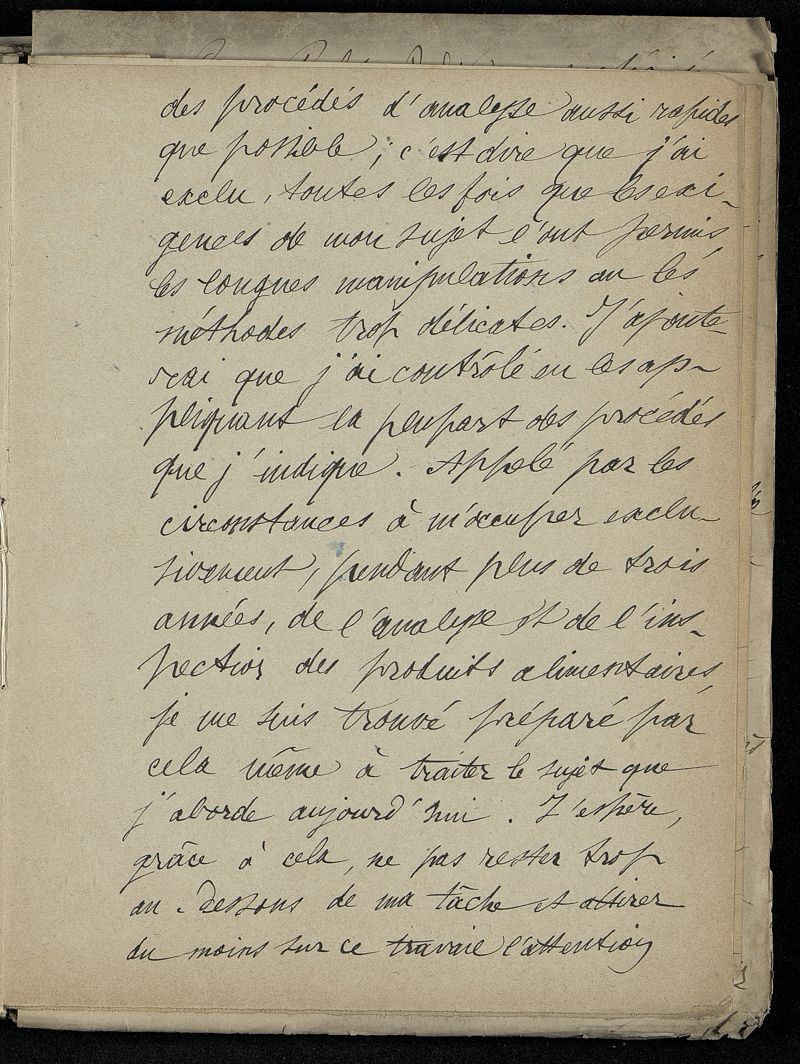 des procédés d'analyse aussi rapides
que possible, c'est dire que j'ai
exclu, toutes les fois que les exi-
gences de mon sujet l'ont permis,
les longues manipulations ou les
méthodes trop délicates. J'ajoute-
rai que j'ai contrôlé en les ap-
pliquant la plupart des procédés
que j'indique. Appelé par les
circonstances à m'occuper exclu-
sivement, pendant plus de trois
années, de l'analyse et de l'ins-
pection des produits alimentaires,
je me suis trouvé préparé par
cela même à traiter le sujet que
j'aborde aujourd'hui. J'espère,
grâce à cela, ne pas rester trop
au-dessous de ma tâche et attirer
du moins sur ce travail l'attention